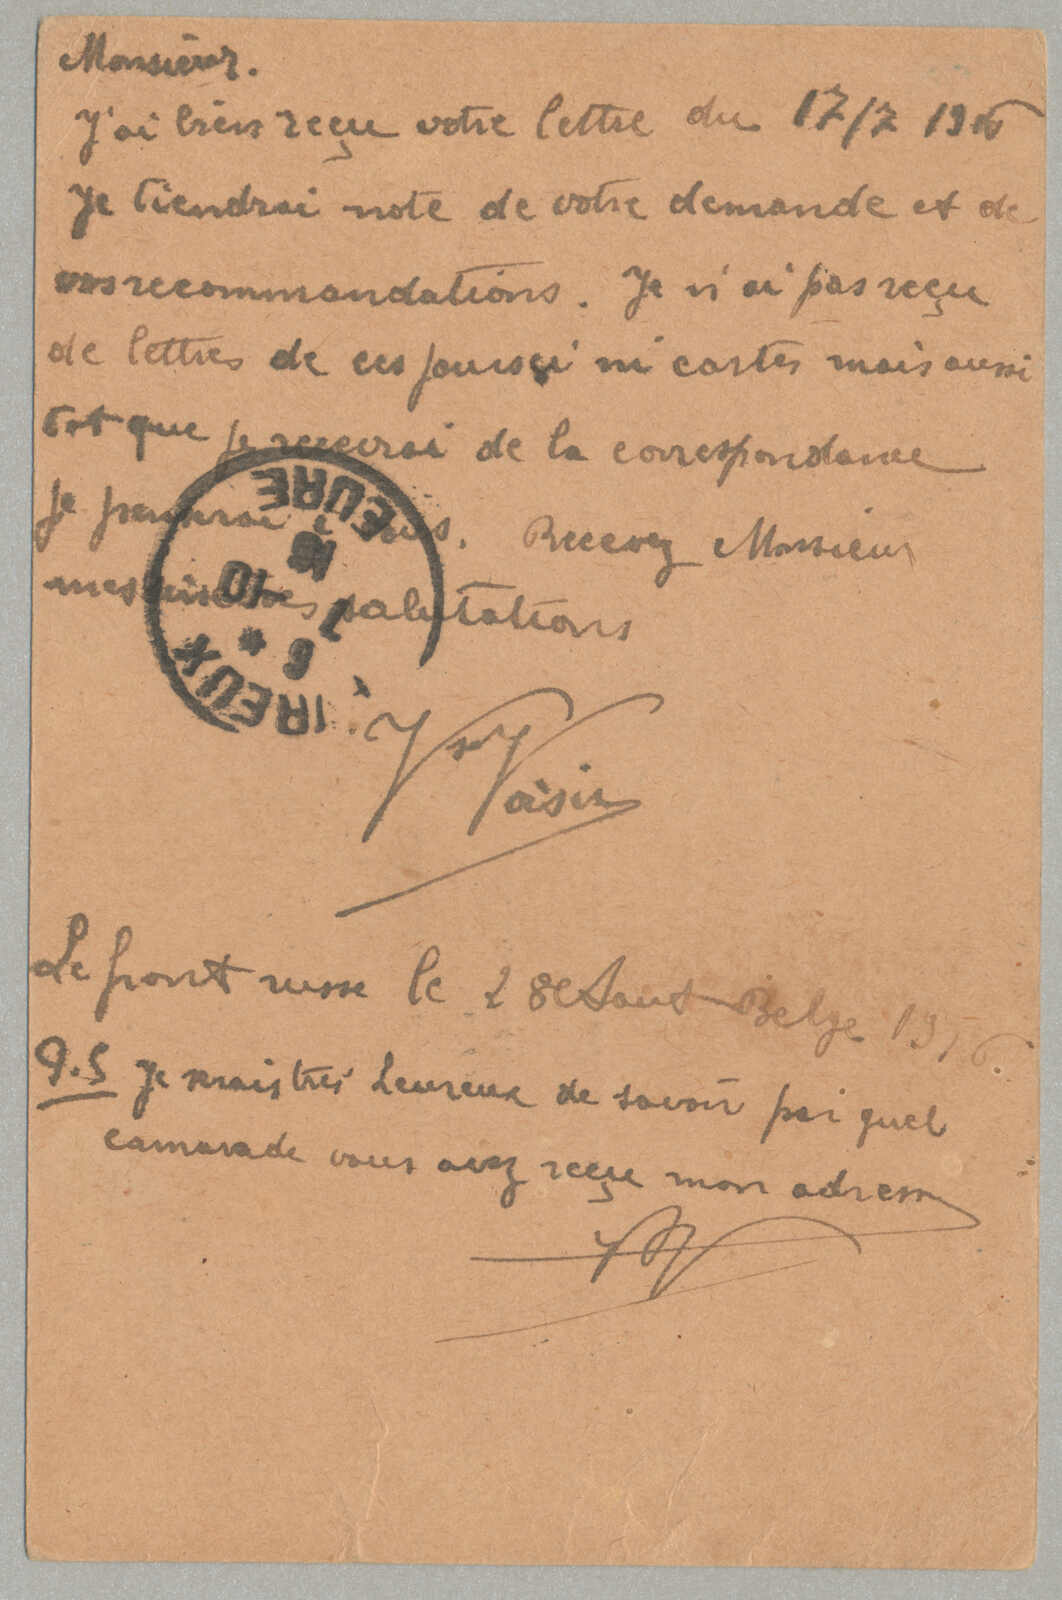 Monsieur.
J'ai bien reçu votre lettre du 17/7 1916
Je tiendrai note de votre demande et de
vos recommandations. Je n'ai pas reçu
de lettres de ces jours ci ni cartes mais aussi
tot que je recevrai de la correspondance
je penserai à vous. Recevez Monsieur
mes sincères salutations
EURE
18
10
7
6 *
IREUX
Voisin
Le front russe le 28 Aout Belge 1916
P.S Je serais très heureux de savoir par quel
camarade vous avez reçu mon adresse